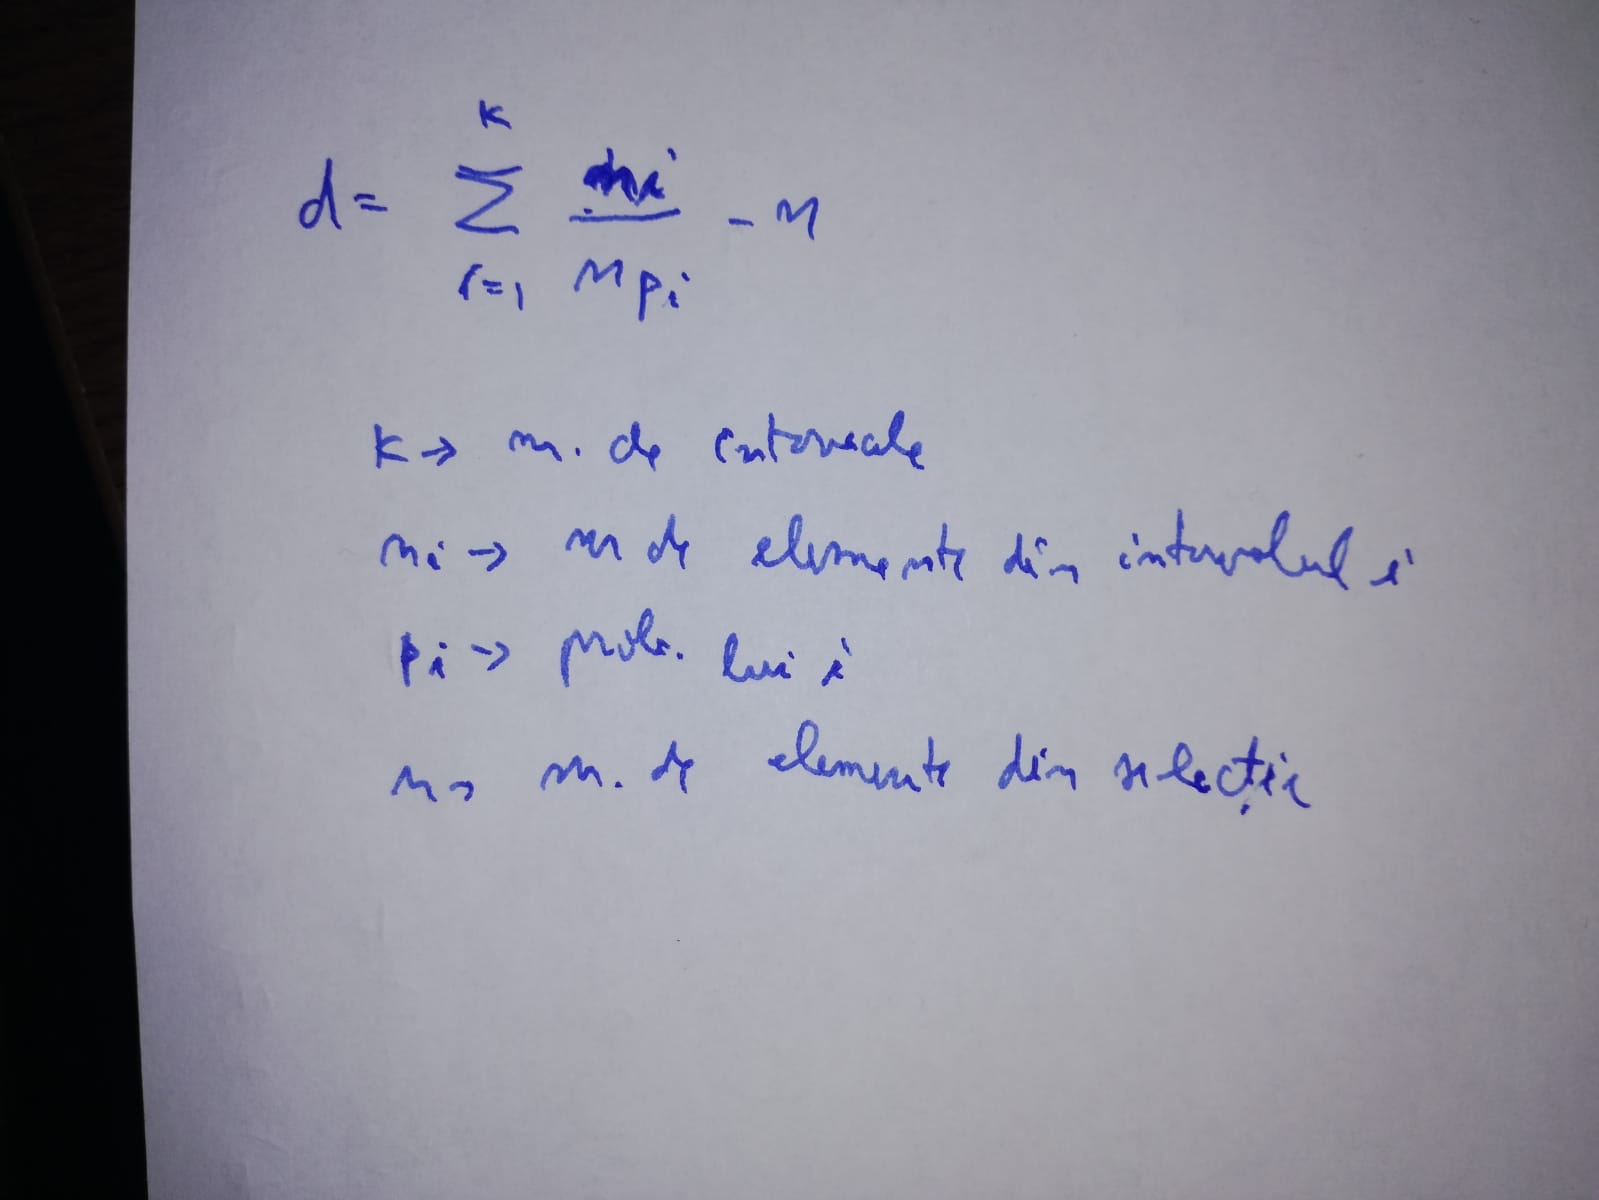 d = K Σ i=1 ni / n pi - n
K → nr. de intervale
ni → nr de elemente din intervalul i
pi → prob. lui i
n → nr. de elemente din selecție